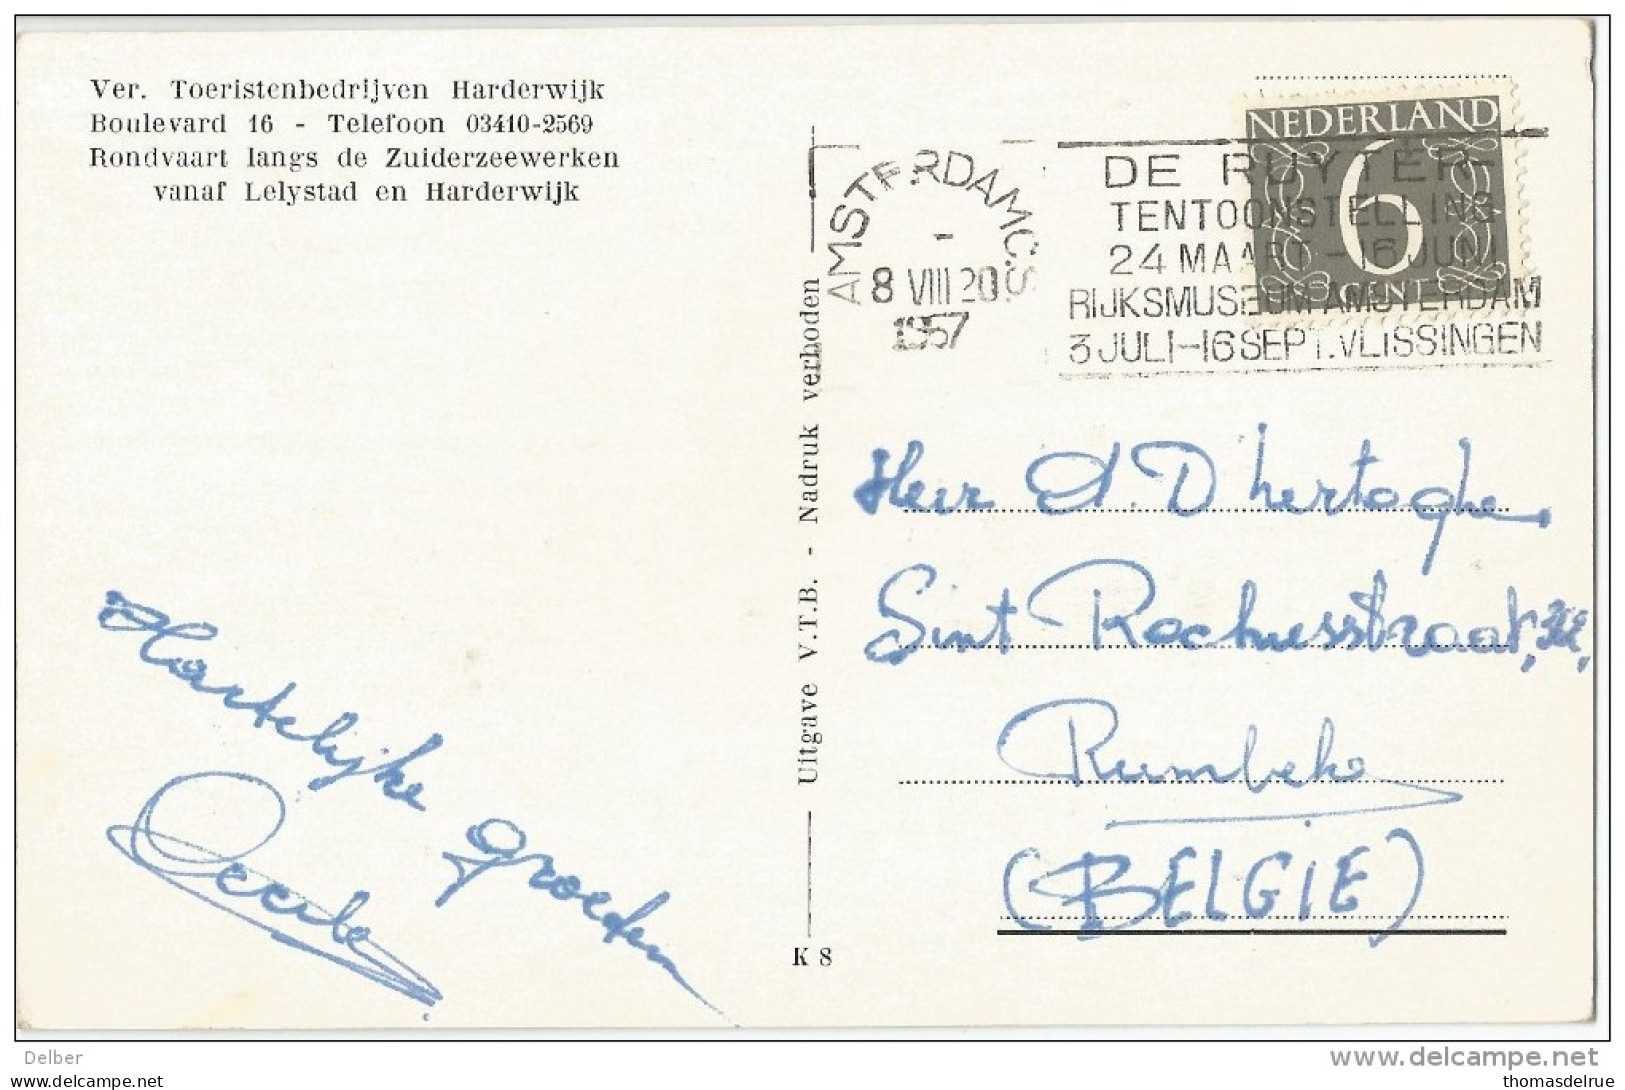 Ver. Toeristenbedrijven Harderwijk
Boulevard 16 - Telefoon 03410-2569
Rondvaart langs de Zuiderzeewerken
vanaf Lelystad en Harderwijk
Hartelijke groeten
Uitgave V.T.B. - Nadruk verboden
K 8
AMSTERDAM C.S.
8 VIII 20
1957
NEDERLAND
6
CENT
DE RUYTER-
TENTOONSTELLING
24 MAART - 16 JUNI
RIJKSMUSEUM AMSTERDAM
3 JULI - 16 SEPT. VLISSINGEN
Heer A. D'hertoghe
Sint Rochusstraat,
Rumbeke
(BELGIE)
Delber
www.delcampe.net
thomasdelrue